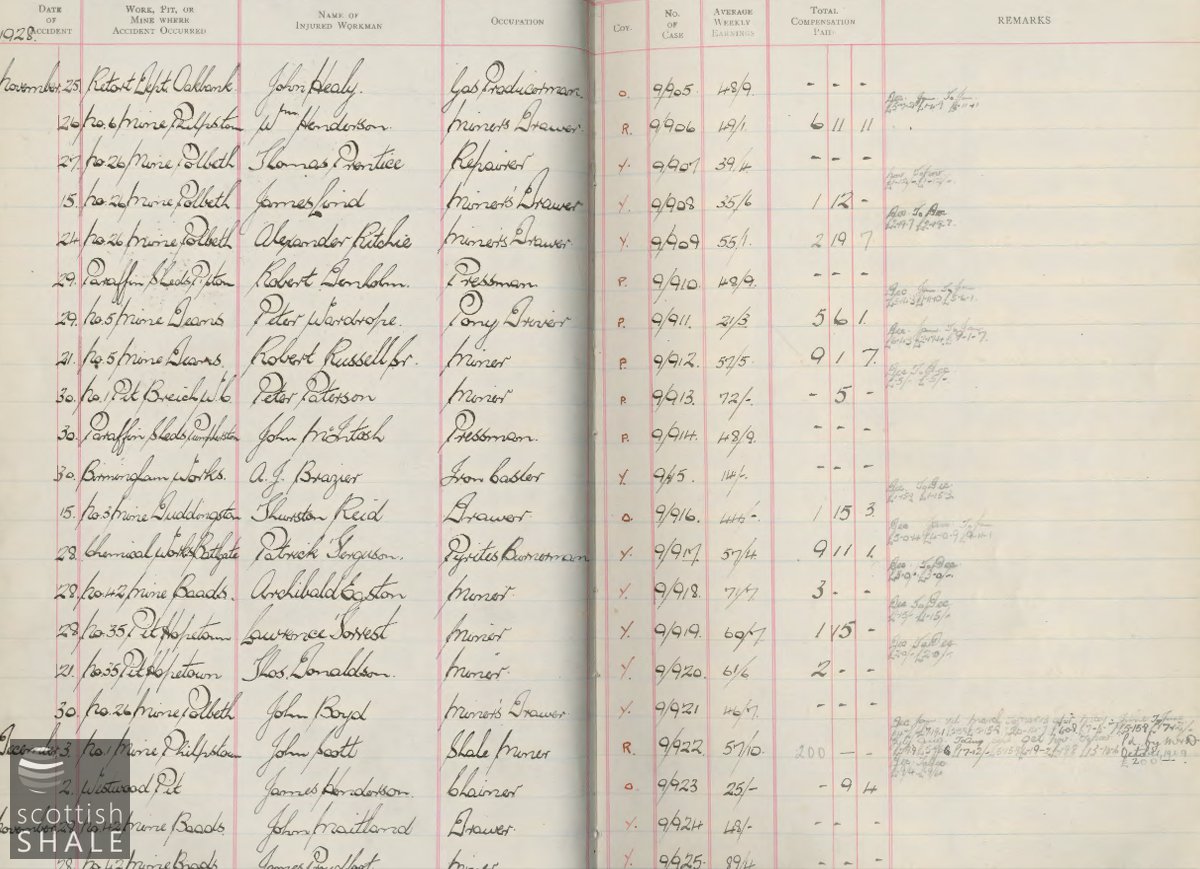 DATE OF ACCIDENT WORK, PIT, OR MINE WHERE ACCIDENT OCCURRED NAME OF INJURED WORKMAN OCCUPATION COY. NO. OF CASE AVERAGE WEEKLY EARNINGS TOTAL COMPENSATION PAID REMARKS
1928.
November 25 Retort Dept. Oakbank. John Healy. Gas Producerman. O. 9/905 48/9. - - -
26 No. 6 Mine, Philpston Wm Henderson. Miner's Drawer. R. 9/906 49/1. 6 11 11
27 No. 26 Mine, Polbeth Thomas Prentice Repairer Y. 9/907 39/4. - - -
15. No. 26 Mine, Polbeth James Lind Miner's Drawer Y. 9/908 35/6 1 12 -
24 No. 26 Mine, Polbeth Alexander Ritchie Miner's Drawer. Y. 9/909 55/1. 2 19 7
29. Paraffin Sheds, P'ston Robert Denholm. Pressman P. 9/910. 48/9. - - -
29. No. 5 Mine Deans Peter Wardrope. Pony Driver P. 9/911. 21/3 5 6 1.
21. No. 5 Mine Deans Robert Russell Sr. Miner P. 9/912. 57/5. 9 1 7.
30. No. 1 Pit Breich W.C. Peter Paterson Miner P. 9/913. 72/-. - 5 -
30. Paraffin Sheds, Pumpherston John McIntosh Pressman. P. 9/914. 48/9. - - -
30. Birmingham Works. A. J. Brazier Iron Caster Y. 9/915. 14/-. - - -
15. No. 3 Mine Duddingston Thurston Reid Drawer O. 9/916. 44/-. 1 15 3.
28. Chemical Works, Bathgate Patrick Ferguson. Pyrites Burnerman Y. 9/917. 57/4 9 11 1.
28. No. 42 Mine Baads. Archibald Egston Miner. Y. 9/918. 71/7 3 - -
28 No. 35 Pit Hopetoun Lawrence Torrest Miner Y. 9/919. 60/7. 1 15 -
21. No. 35 Pit Hopetown Thos. Donaldson. Miner. Y. 9/920. 61/6 2 - -
30. No. 26 Mine, Polbeth John Boyd Miner's Drawer. Y. 9/921 46/7.
December 3. No. 1 Mine Philpstoun John Scott Shale Miner R. 9/922. 57/10. 200 - -
2. Westwood Pit James Henderson. Chainer O. 9/923 25/- - 9 4
November 28 No. 42 Mine Baads John Maitland Drawer. Y. 9/924 48/- - - -
28. No. 42 Mine Baads James Proudfoot Miner Y. 9/925. 89/4 - - -
scottish
SHALE